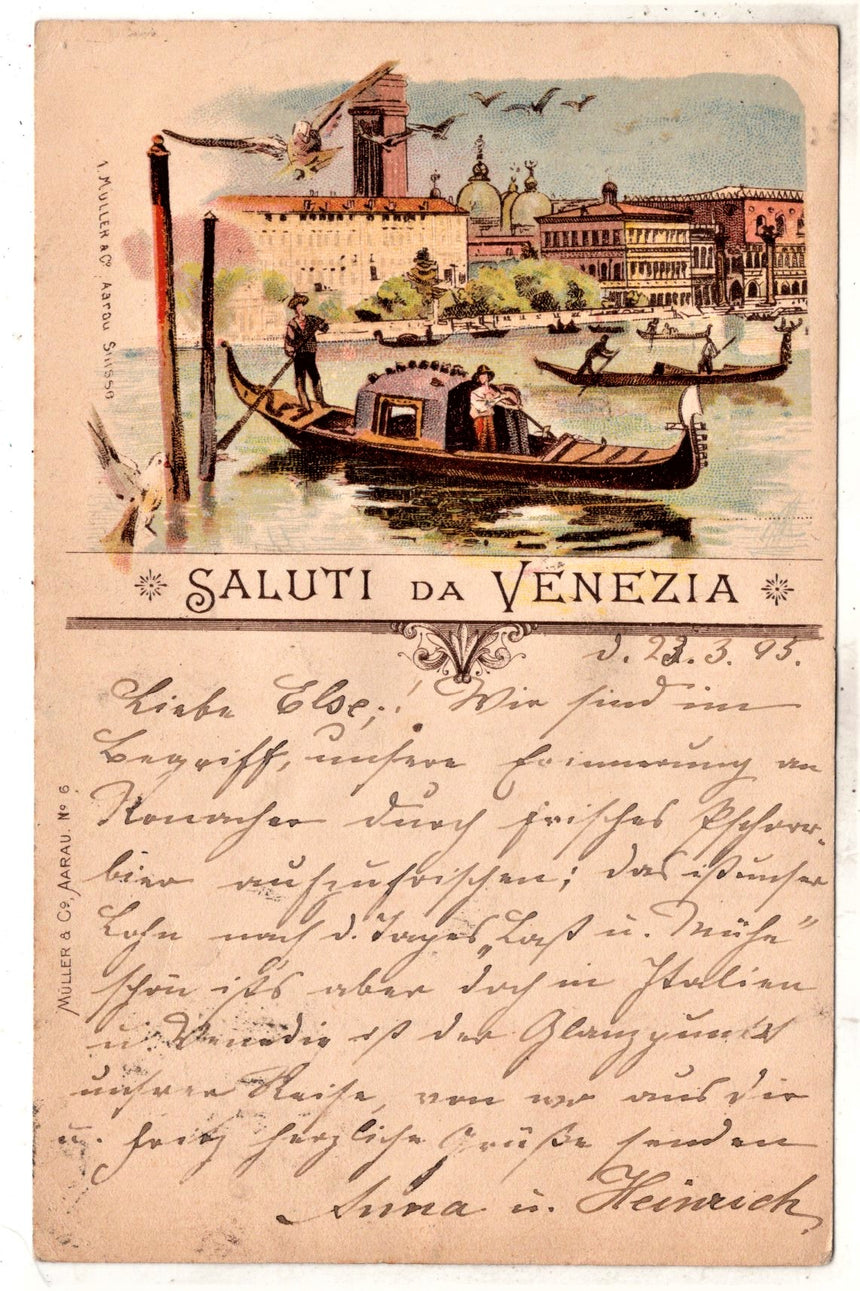 1. MÜLLER & Cº Aarau Suisse
SALUTI DA VENEZIA
d. 23.3.95.
Liebe Else,! Wir sind im
Begriff, unsere Erinnerung an
Ronacher durch frisches Pschorr-
bier aufzufrischen; das ist unser
Lohn nach d. Tages „Last u. Mühe“
schön ist's aber doch in Italien
u. Venedig ist der Glanzpunkt
unsrer Reise, von wo aus Dir
u. Fritz herzliche Grüße senden
Anna u. Heinrich
MÜLLER & Cº, AARAU. Nº 6